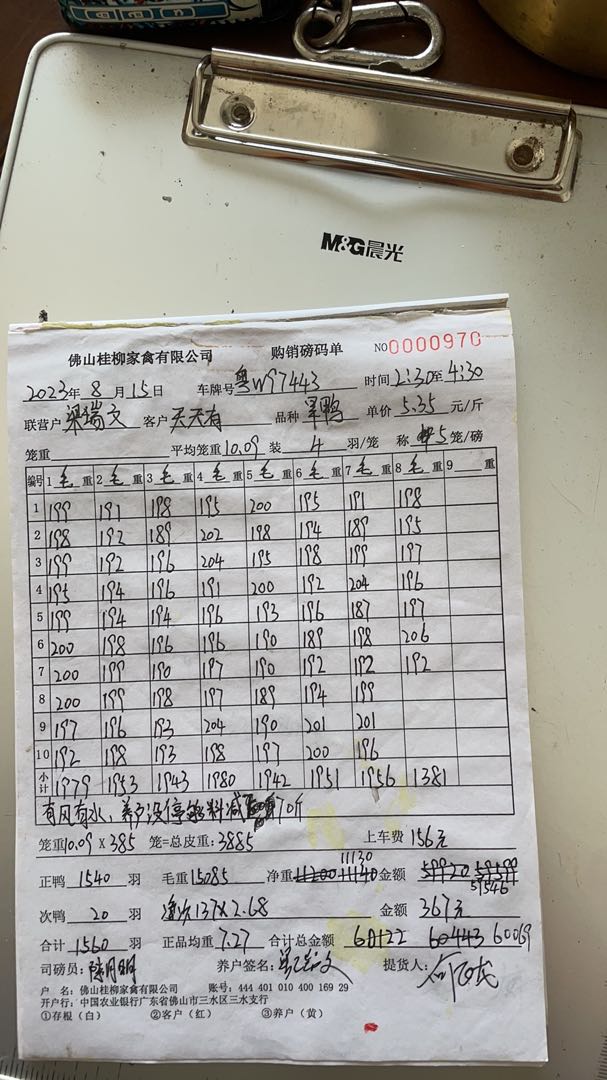 M&G晨光
佛山桂柳家禽有限公司 购销磅码单 NO0000970
2023年8月15日 车牌号粤W97443 时间2:30至4:30
联营户梁瑞文 客户天天有 品种 单价5.35元/斤
笼重 平均笼重10.09 装4羽/笼 称5笼/磅
编号 1毛重 2毛重 3毛重 4毛重 5毛重 6毛重 7毛重 8毛重 9重
1 199 191 198 195 200 195 191 198
2 198 192 189 202 198 194 189 195
3 199 192 196 204 195 198 199 197
4 195 194 196 191 200 192 204 196
5 199 194 194 196 193 196 187 197
6 200 198 196 196 190 189 198 206
7 200 199 190 197 190 192 192 192
8 200 199 198 197 189 194 199
9 197 196 193 204 190 201 201
10 192 198 193 198 197 200 196
小计 1979 1953 1943 1980 1942 1951 1956 1381
有风有水,养户没停料减70斤
笼重10.09X385笼=总皮重:3885 上车费156元
11130
正鸭1540羽 毛重15085 净重11200 11140 金额59920 59599
59546
次鸭20羽 137X2.68 金额367元
合计1560羽 正品均重7.27 合计总金额60122 60443 60069
司磅员: 养户签名: 提货人:
户 名:佛山桂柳家禽有限公司 账号:444 401 010 400 169 29
开户行:中国农业银行广东省佛山市三水区三水支行
①存根(白) ②客户(红) ③养户(黄)